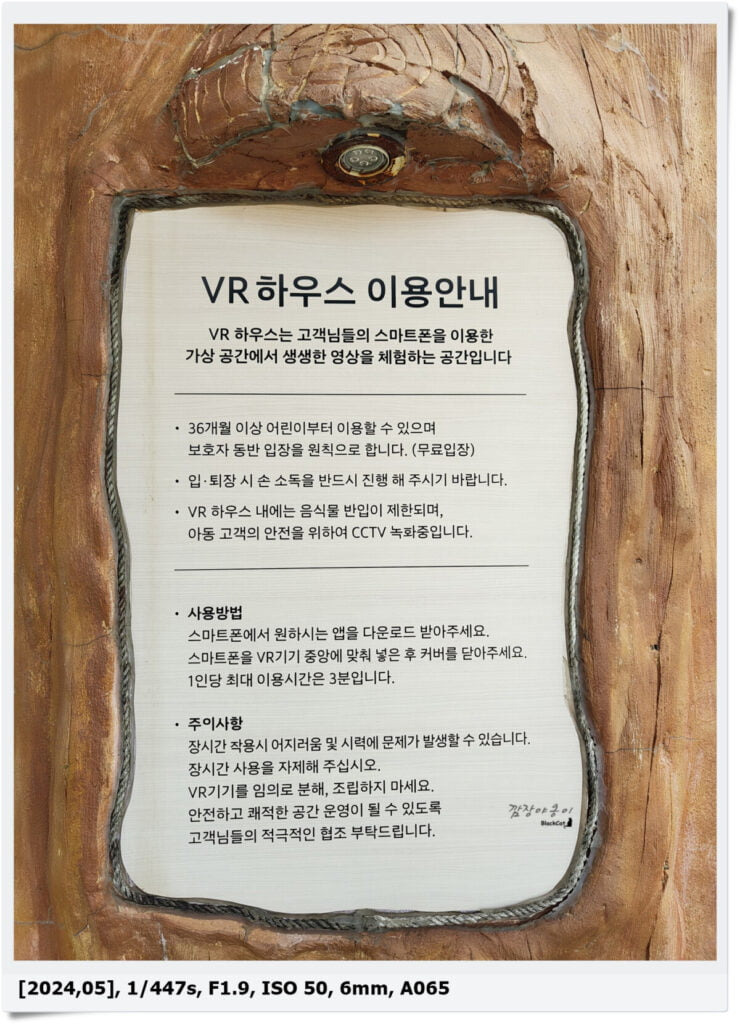 VR 하우스 이용안내
VR 하우스는 고객님들의 스마트폰을 이용한
가상 공간에서 생생한 영상을 체험하는 공간입니다
• 36개월 이상 어린이부터 이용할 수 있으며
보호자 동반 입장을 원칙으로 합니다. (무료입장)
• 입·퇴장 시 손 소독을 반드시 진행 해 주시기 바랍니다.
• VR 하우스 내에는 음식물 반입이 제한되며,
아동 고객의 안전을 위하여 CCTV 녹화중입니다.
• 사용방법
스마트폰에서 원하시는 앱을 다운로드 받아주세요.
스마트폰을 VR기기 중앙에 맞춰 넣은 후 커버를 닫아주세요.
1인당 최대 이용시간은 3분입니다.
• 주이사항
장시간 착용시 어지러움 및 시력에 문제가 발생할 수 있습니다.
장시간 사용을 자제해 주십시오.
VR기기를 임의로 분해, 조립하지 마세요.
안전하고 쾌적한 공간 운영이 될 수 있도록
고객님들의 적극적인 협조 부탁드립니다.
깜장야옹이
BlackCat
[2024,05], 1/447s, F1.9, ISO 50, 6mm, A065